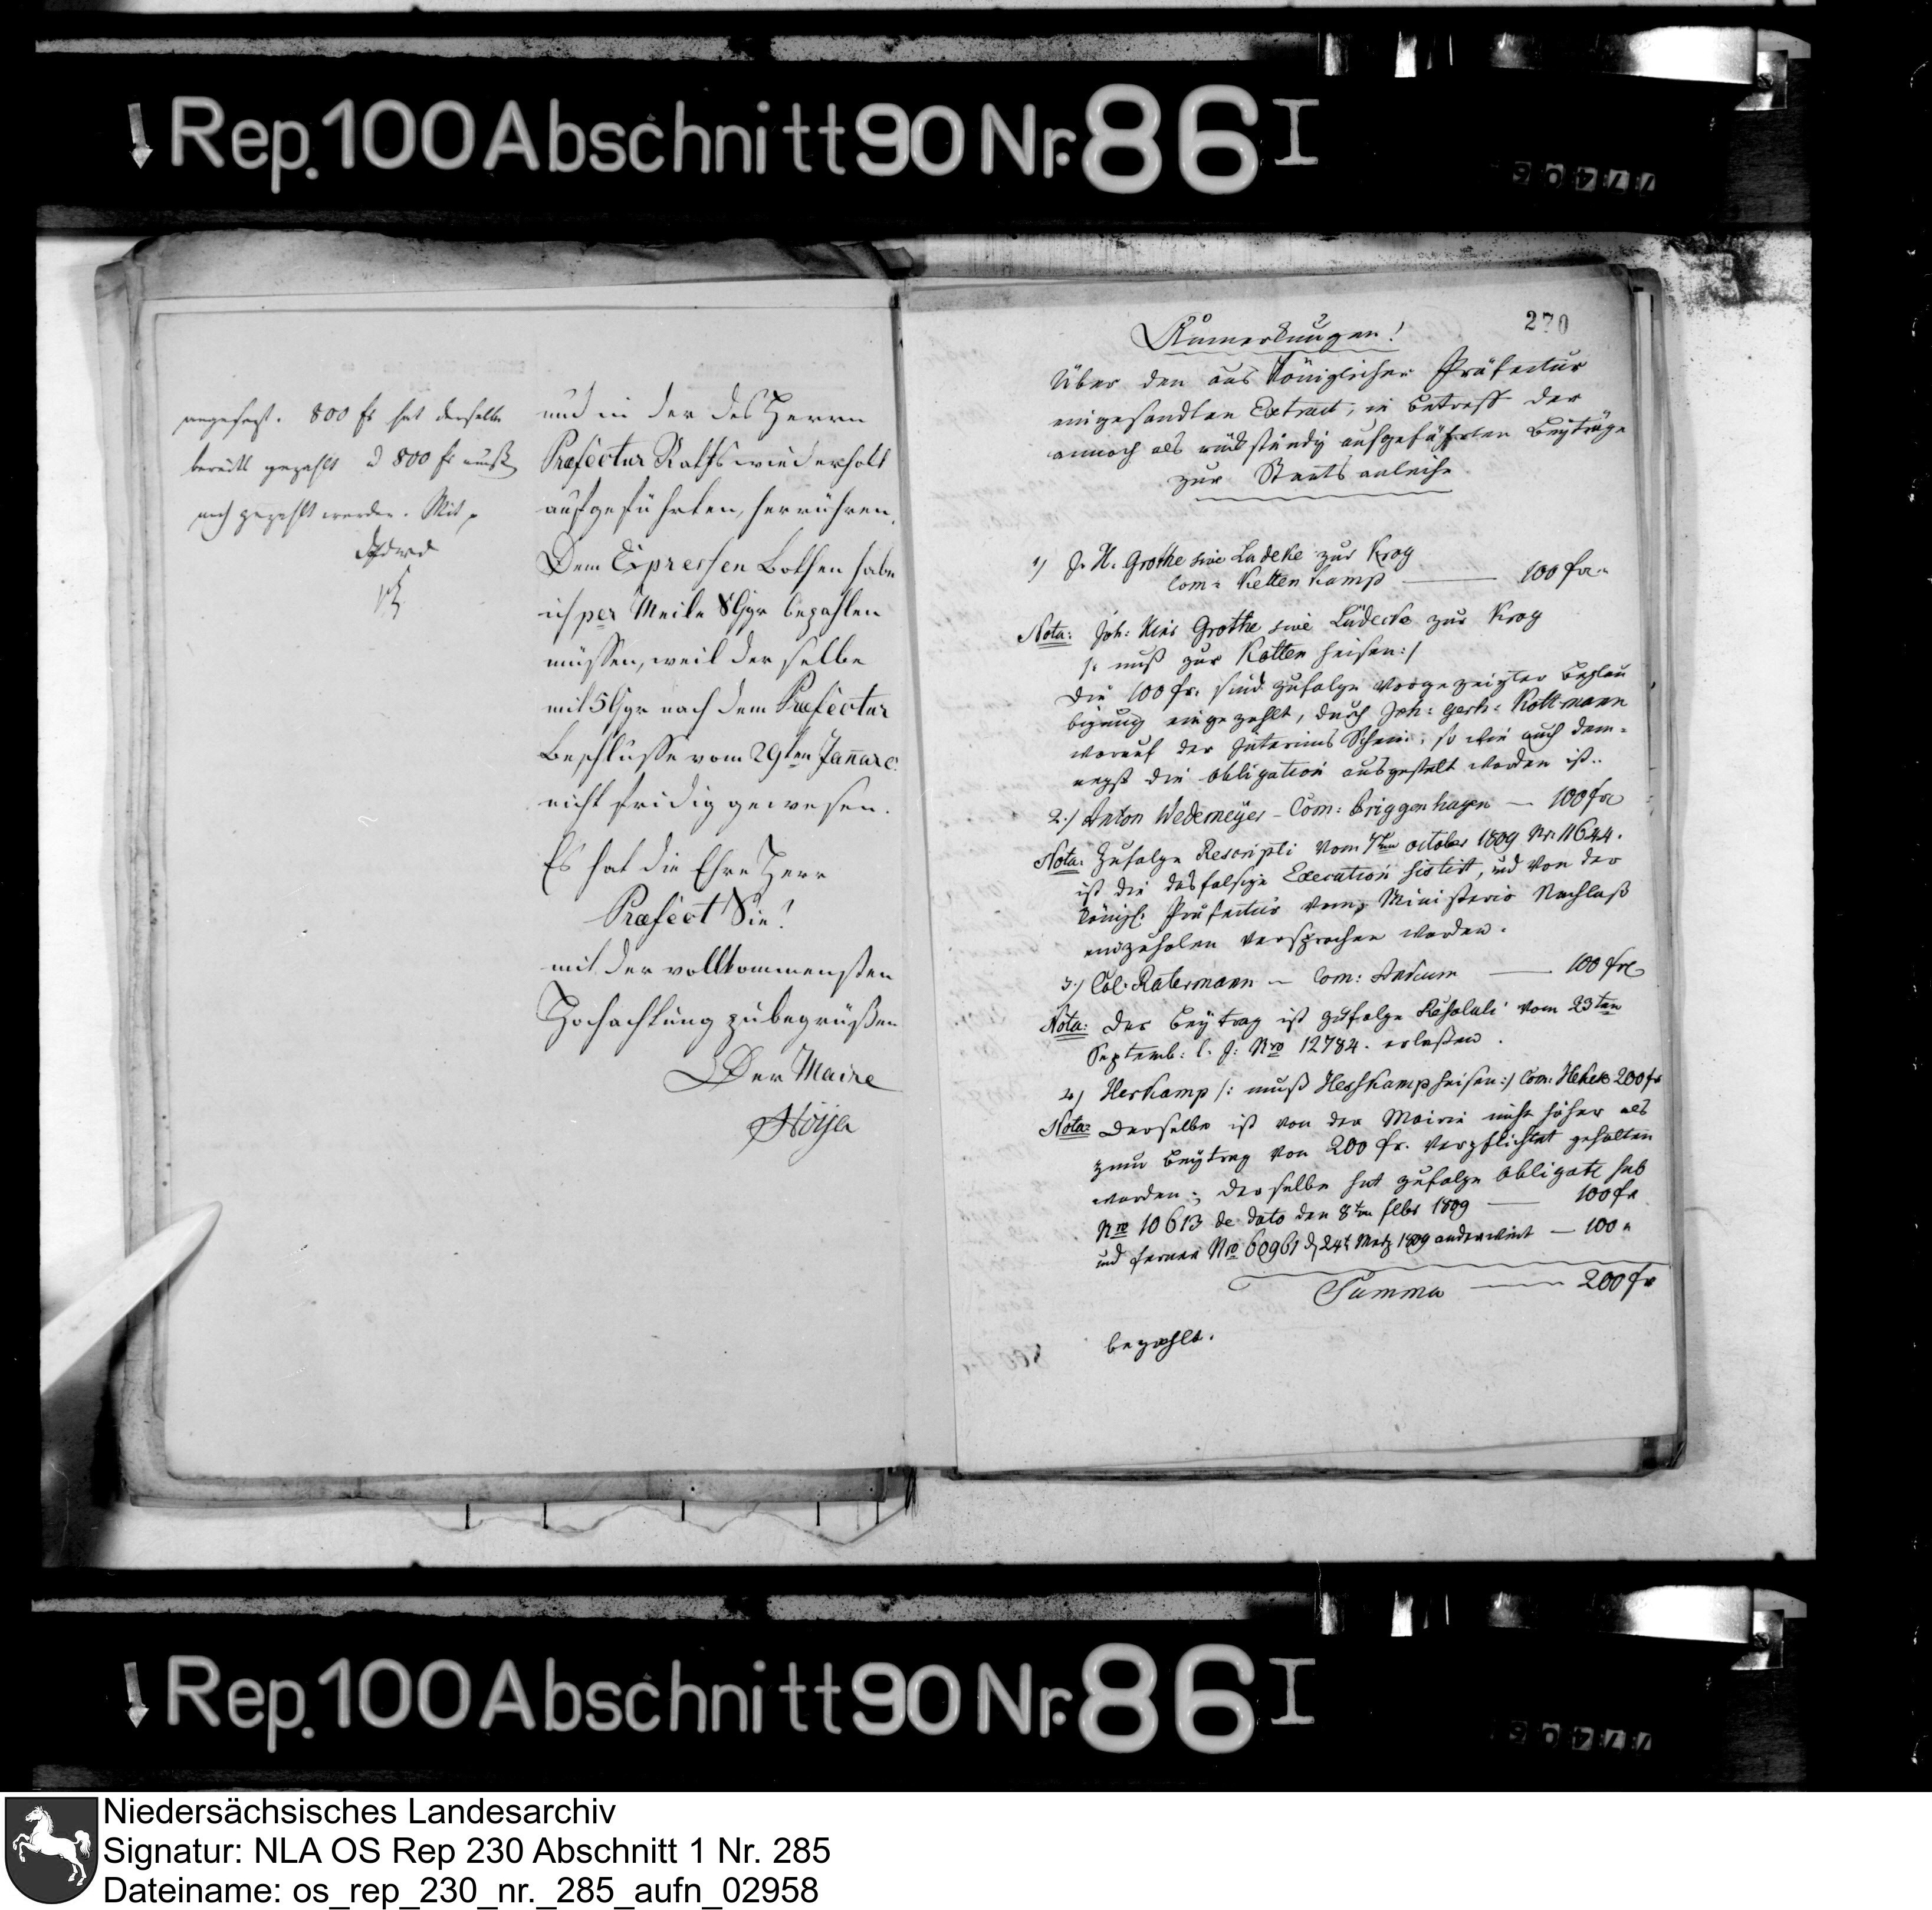 Rep. 100 Abschnitt 90 Nr. 86 I
77406
angesagt. 800 fr hat derselbe
bereits gezahlt u 800 fr muß
noch gezahlt werden. Mit
und in der des Herrn
Præfectur Raths wiederholt
aufgeführten, herrühren,
Dem Expressen Bothen habe
ich per Meile 8 Ggr bezahlen
müssen, weil derselbe
mit 5 Ggr nach dem Præfectur
Beschlusse vom 29ten Januar c.
nicht fridig gewesen.
Es hat die Ehre Herr
Præfect Sie!
mit der vollkommensten
Hochachtung zu begrüßen
Der Maire
270
Anmerkungen!
Über den aus Königlicher Präfectur
eingesandten Extract, in Betreff der
annoch als rückständig aufgeführten Beyträge
zur Staatsanleihe
1) J. H. Grothe sive Ladeke zur Krog
Com: Kettenkamp — 100 fr.
Nota: Joh: Hinr Grothe sive Lüdecke zur Krog
/: muß zur Kotten heisen :/
Die 100 fr. sind zufolge vorgezeigter Beglau
bigung eingezahlt, durch Joh: Gerh: Kottmann
worauf der Interims Schein, so wie auch dem-
negst die Obligation ausgestelt worden ist.
2.) Anton Wedemeyer - Com: Briggenhagen — 100 fr
Nota: Zufolge Rescripti vom 7ten October 1809 Nr. 11644.
ist die desfalsige Execution sistirt, und von der
Königl. Präfectur vom Ministerio Nachlaß
einzuholen versprochen worden.
3.) Col. Ratermann — Com: Ankum — 100 fr
Nota: Der Beytrag ist zufolge Resoluti vom 23ten
Septemb: l. J: Nro 12784. erlaßen.
4) Herkamp /: muß Heshkamp heisen :/ Com: Hekese 200 fr
Nota: Derselbe ist von der Mairie nicht höher als
zum Beytrag von 200 fr. verpflichtet gehalten
worden; derselbe hat zufolge Obligat: sub
Nro 10613 de dato den 8ten 1809 — 100 fr
und ferner Nro 60961 d 24t 1809 anderweit — 100 "
Summa — 200 fr
bezahlt.
Rep. 100 Abschnitt 90 Nr. 86 I
77406
Niedersächsisches Landesarchiv
Signatur: NLA OS Rep 230 Abschnitt 1 Nr. 285
Dateiname: os_rep_230_nr._285_aufn_02958